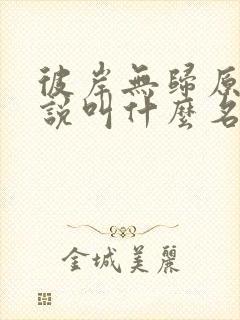 彼岸無歸原
說叫什麼名
金城美麗